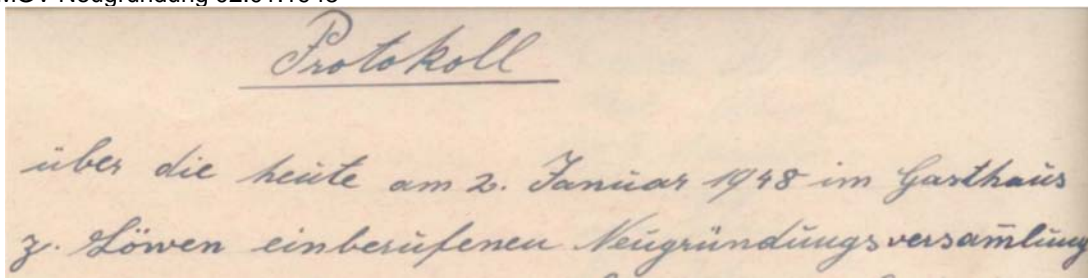 MGV Neugründung 02.01.1948
Protokoll
über die heute am 2. Januar 1948 im Gasthaus
z. Löwen einberufenen Neugründungsversam̄lung